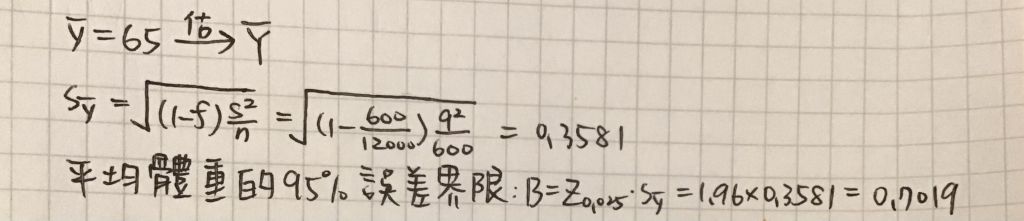 ȳ = 65 估→ Ȳ
Sȳ = √((1-f) s²/n) = √((1 - 600/12000) 9²/600) = 0.3581
平均體重的95%誤差界限: B = Z0.025 · Sȳ = 1.96 × 0.3581 = 0.7019